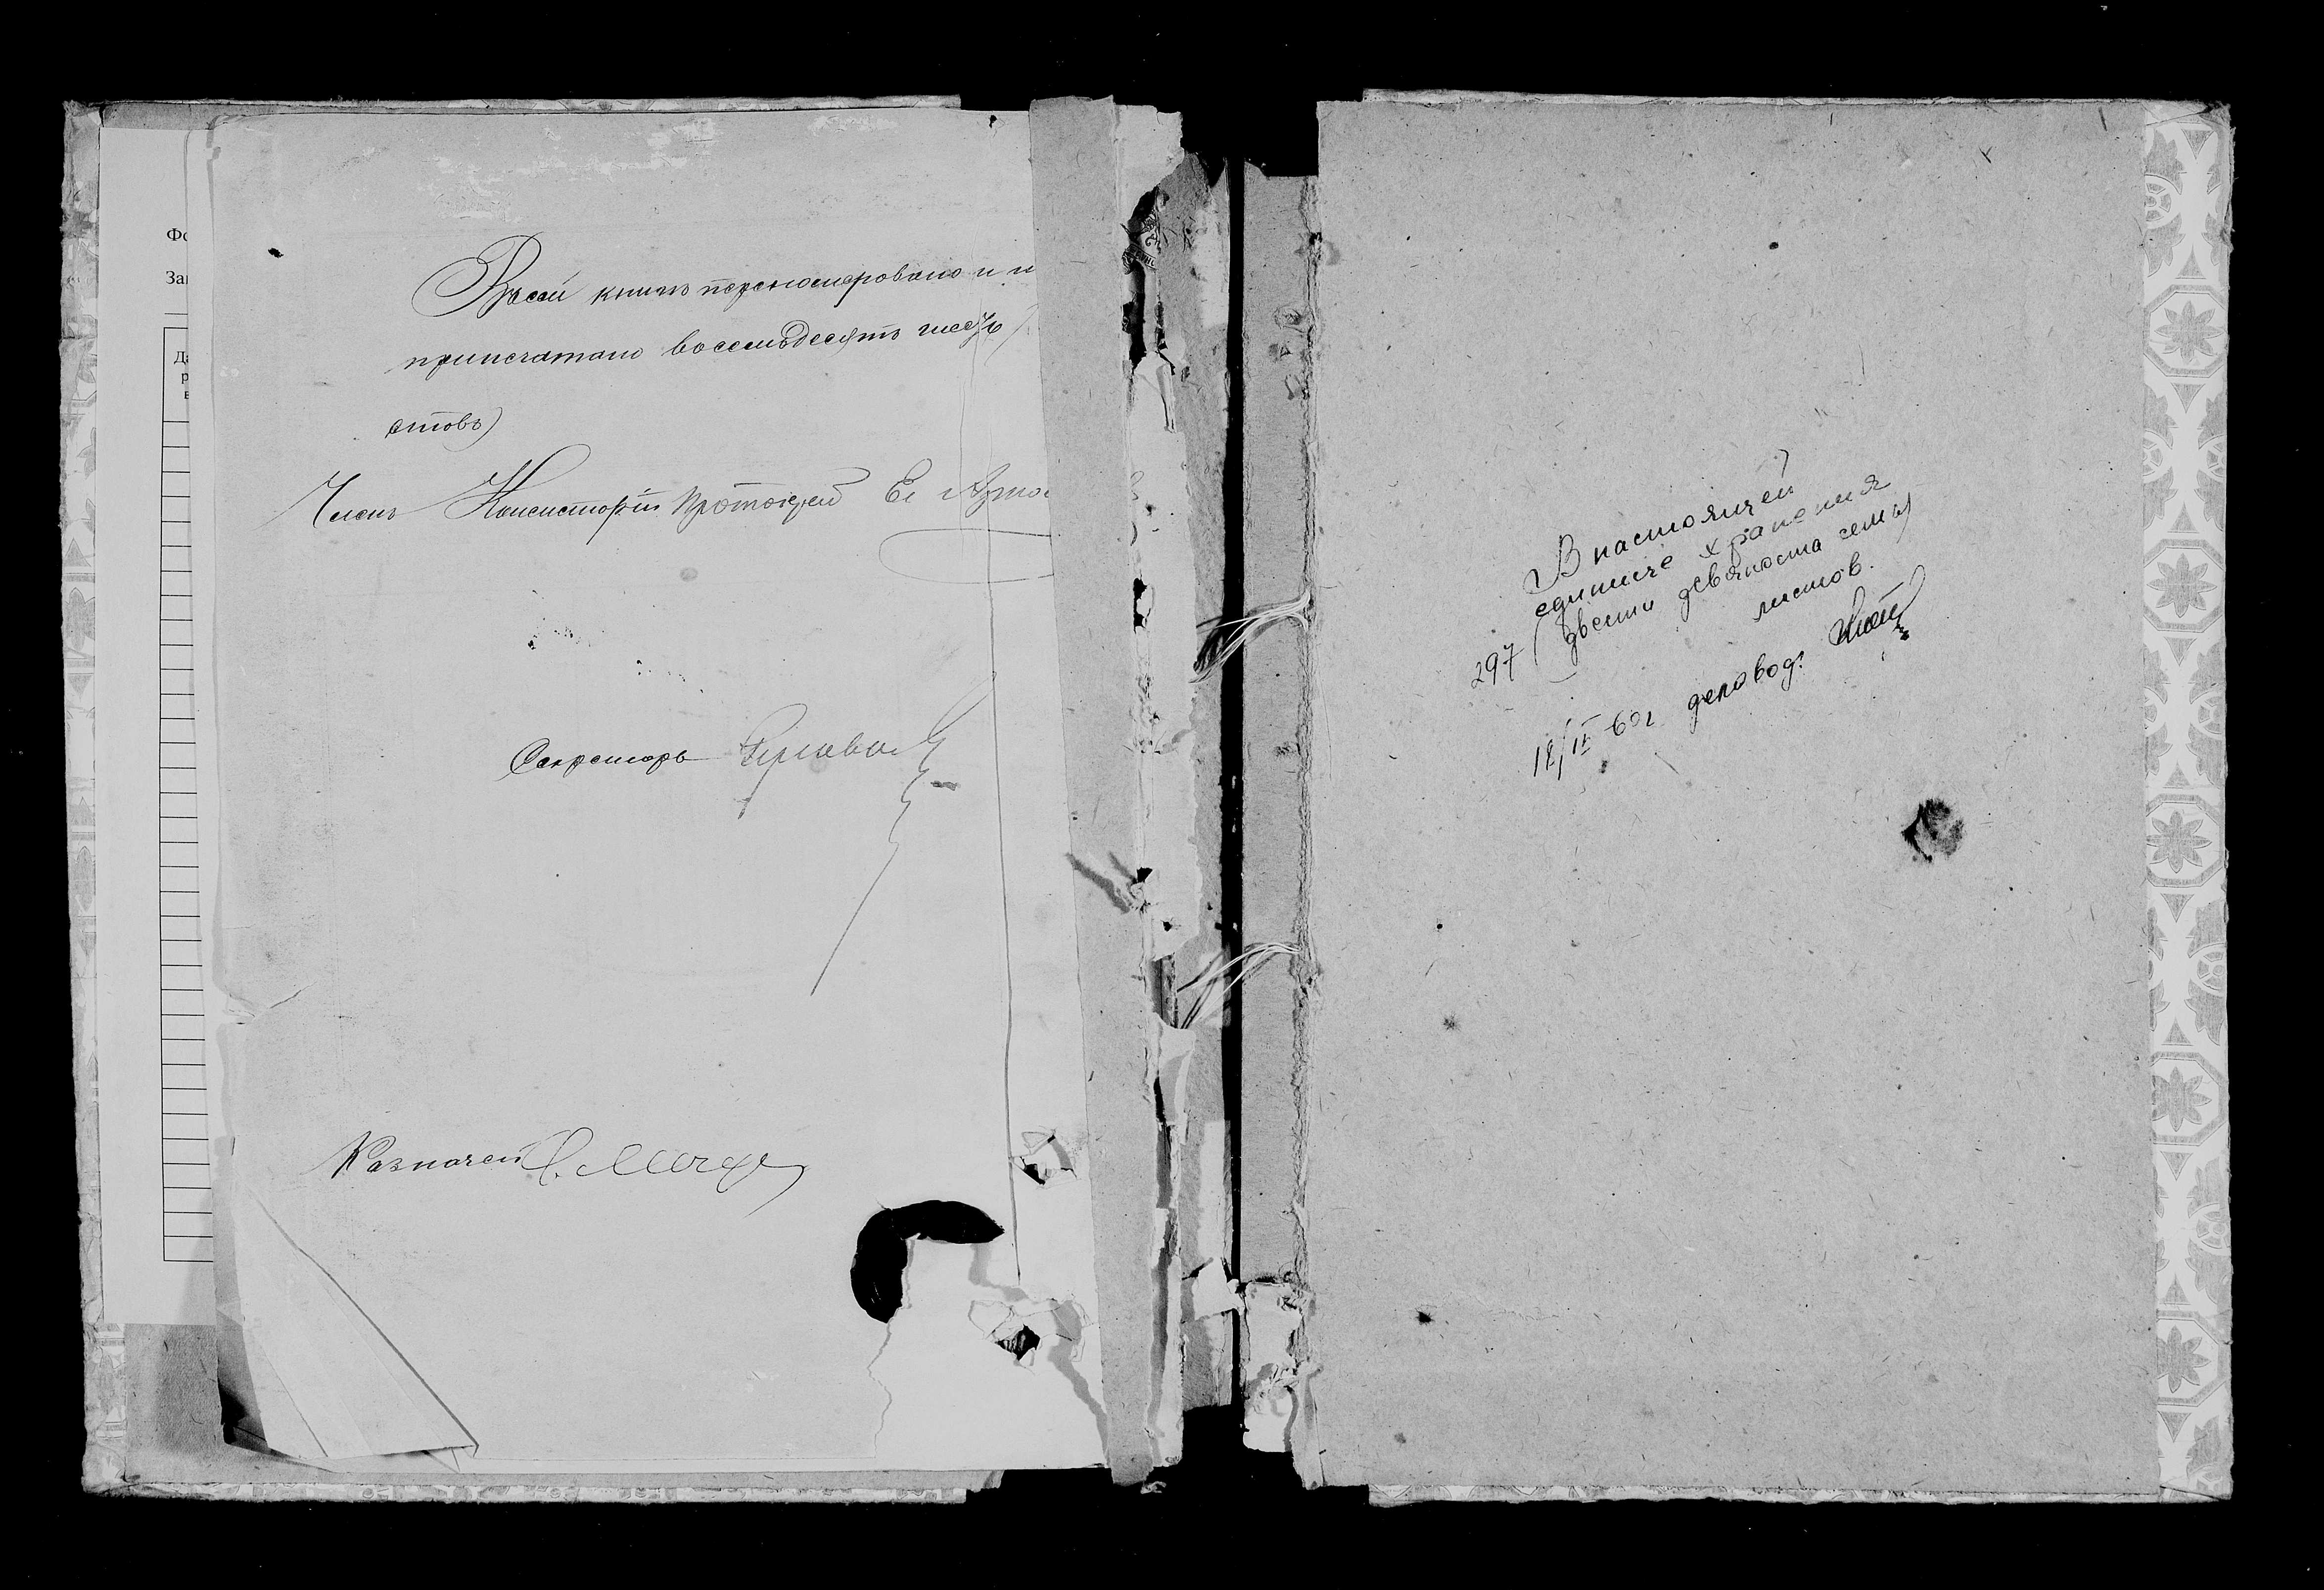 Фо
За
Да
р
в
Въ сей книгѣ перенумеровано и п
припечатано восемьдесятъ шесть
стовъ)
Членъ Консисторіи Протоіерей Ев.
Секретарь
Казначей
В настоящей
единице хранения
297 (двести девяносто семь)
листов.
18/IV 60г деловод.